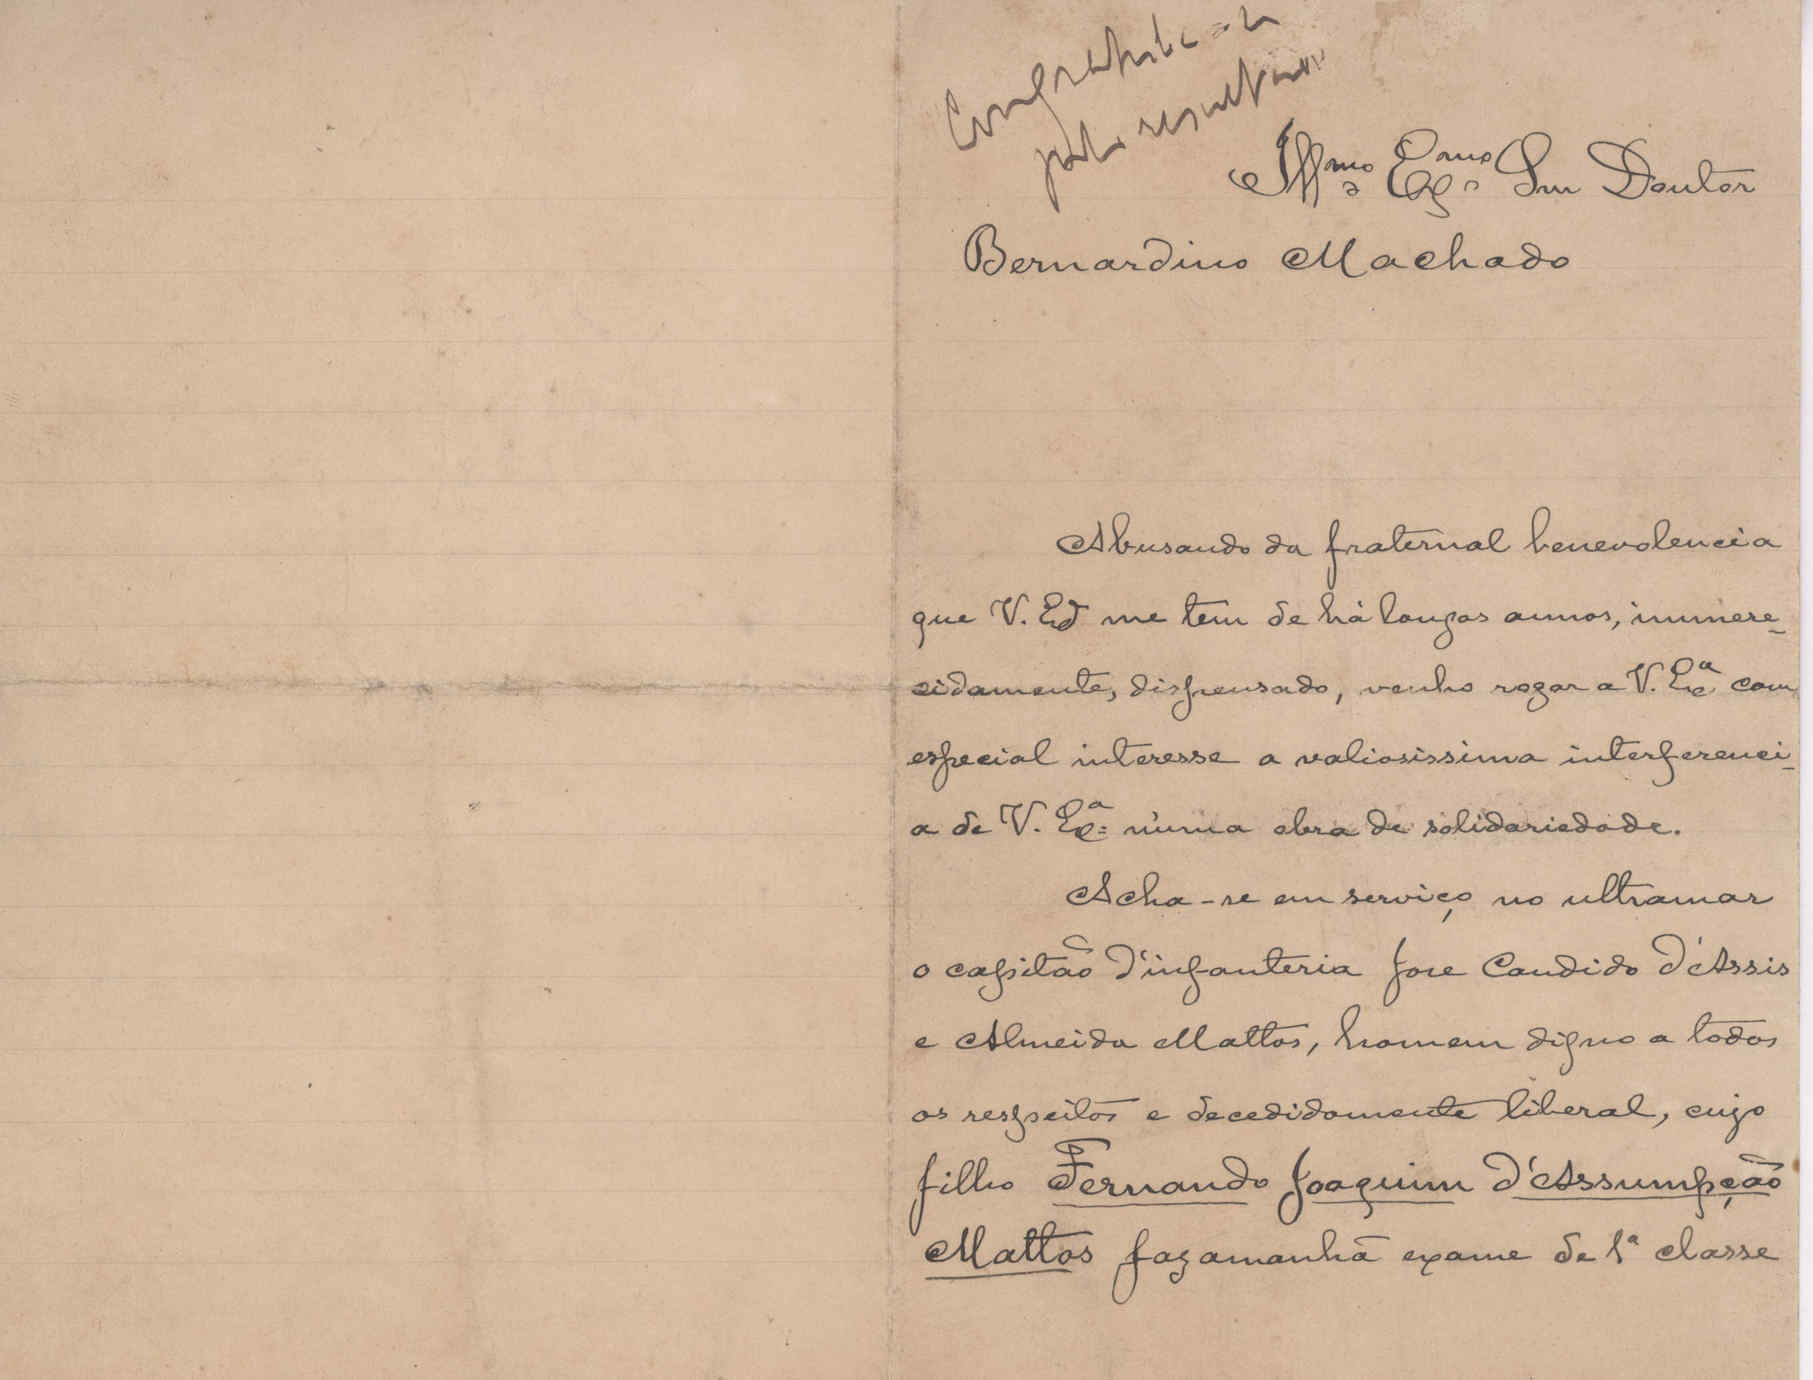 pelo resultado
Illmo. Exmo. Snr Doutor
Bernardino Machado
Abusando da fraternal benevolencia
que V. Exª me tem de há longos annos, immere-
cidamente, dispensado, venho rogar a V. Exª com
especial interesse a valiosissima interferenci-
a de V. Exª n'uma obra de solidariedade.
Acha-se em serviço no ultramar
o capitão d'infanteria Jose Candido d'Assis
e Almeida Mattos, homem digno a todos
os respeitos e decedidamente liberal, cujo
filho Fernando Joaquim d'Assumpção
Mattos faz amanhã exame de 1ª classe